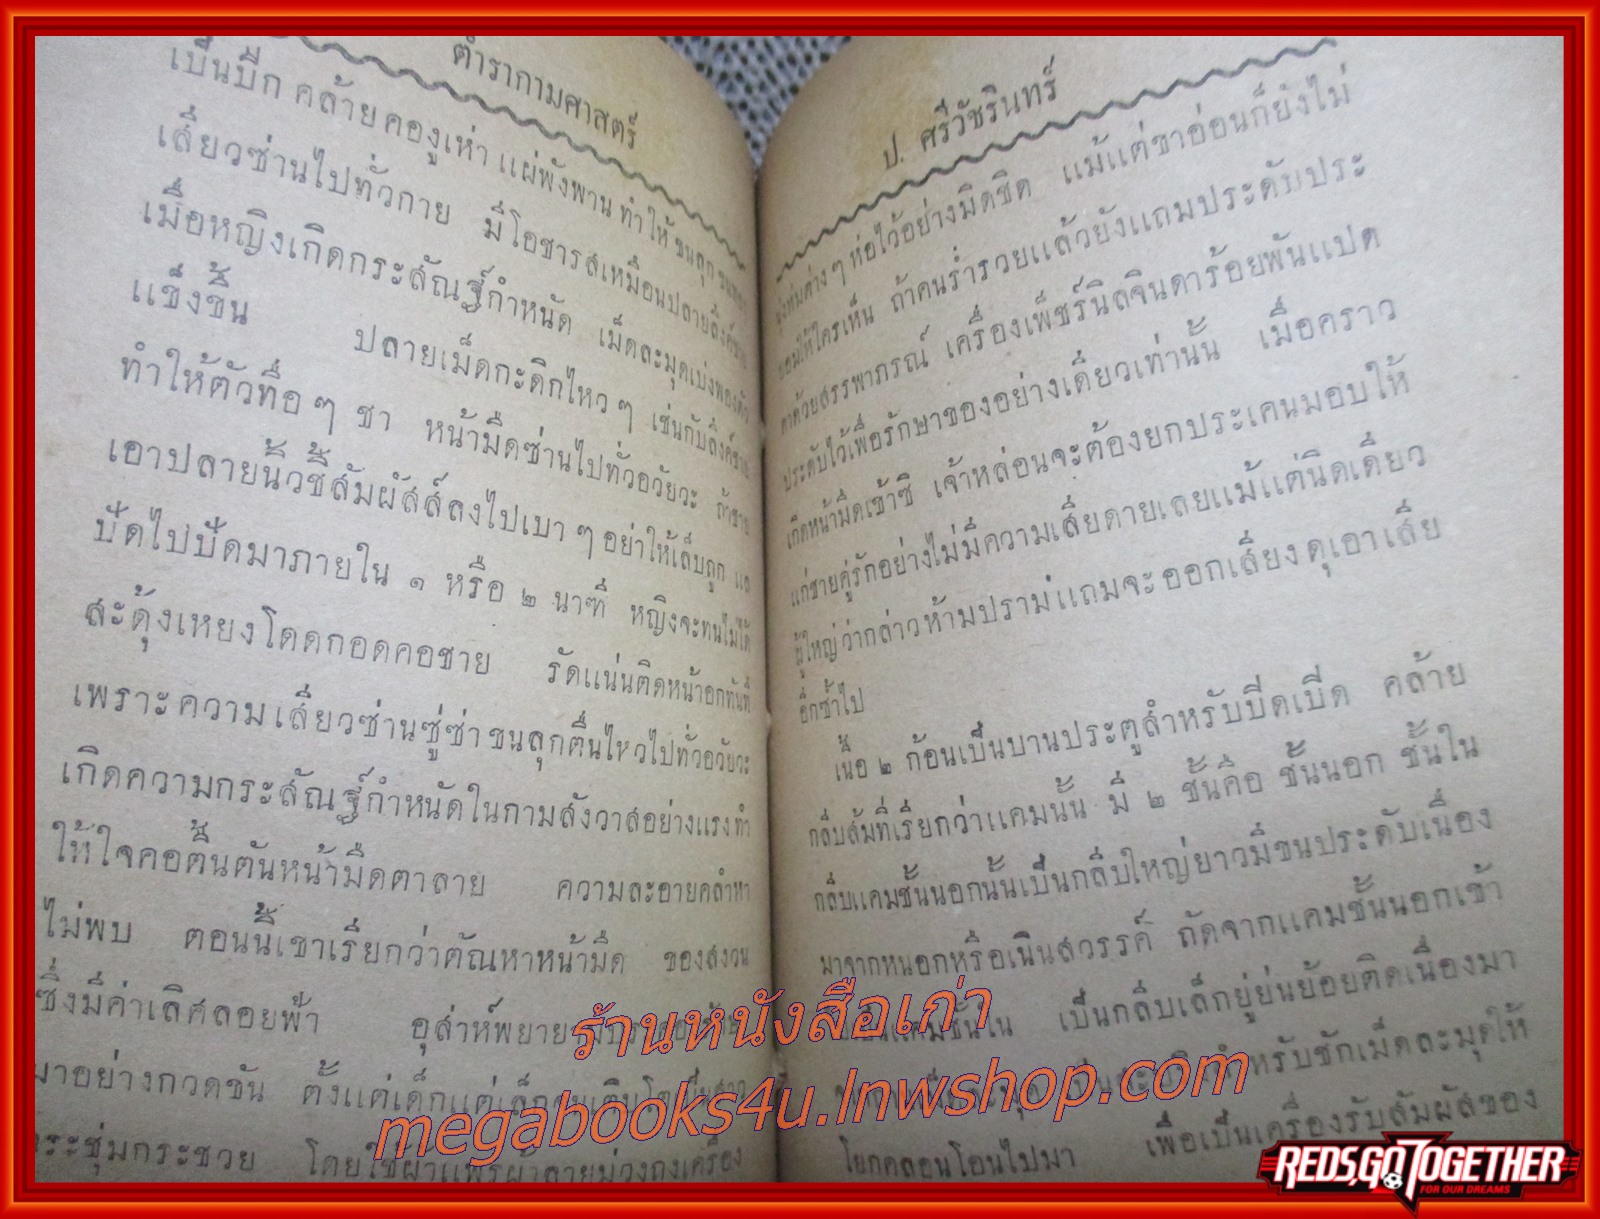 ตำรากามศาสตร์
เป็นปีก คล้ายคองูเห่า แผ่พังพาน ทำให้ ขนลุก
เสี่ยวซ่านไปทั่วกาย มีโอชารสเหมือนปลายลึงค์ชาย
เมื่อหญิงเกิดกระสัณฐ์กำหนัด เม็ดละมุดเบ่งพองตัว
แข็งขึ้น ปลายเม็ดกะดิกไหว ๆ เช่นกับลึงค์ชาย
ทำให้ตัวทื่อ ๆ ชา หน้ามืดซ่านไปทั่วอวัยวะ ถ้าชาย
เอาปลายนิ้วชี้สัมผัสส์ลงไปเบา ๆ อย่าให้เล็บถูก แล
ปัดไปปัดมาภายใน ๑ หรือ ๒ นาฑี หญิงจะทนไม่ได้
สะดุ้งเหยงโดดกอดคอชาย รัดแน่นติดหน้าอกทันที
เพราะความเสี่ยวซ่านซู่ซ่าขนลุกตื่นไหวไปทั่วอวัยวะ
เกิดความกระสัณฐ์กำหนัดในกามสังวาสอย่างแรงทำ
ให้ใจคอตื้นตันหน้ามืดตาลาย ความละอายคลำหา
ไม่พบ ตอนนี้เขาเรียกว่าตัณหาหน้ามืด ของสงวน
ซึ่งมีค่าเลิศลอยฟ้า อุส่าห์พยายาม
มาอย่างกวดขัน ตั้งแต่เด็กแต่เล็ก
กระชุ่มกระชวย โดยใช้ผ้าแพรผ้าลายม่วงกงเครื่อง
ป. ศรีวัชรินทร์
นุ่งห่มต่าง ๆ ห่อไว้อย่างมิดชิด แม้แต่ขาอ่อนก็ยังไม่
ยอมให้ใครเห็น ถ้าคนร่ำรวยแล้วยังแถมประดับประ
ดาด้วยสรรพาภรณ์ เครื่องเพ็ชร์นิลจินดาร้อยพันแปด
ประดับไว้เพื่อรักษาของอย่างเดียวเท่านั้น เมื่อคราว
เกิดหน้ามืดเข้าซิ เจ้าหล่อนจะต้องยกประเคนมอบให้
แก่ชายคู่รักอย่างไม่มีความเสียดายเลยแม้แต่นิดเดียว
ผู้ใหญ่ว่ากล่าวห้ามปรามแถมจะออกเสียงดุเอาเสีย
อีกซ้ำไป
เนื้อ ๒ ก้อนเป็นบานประตูสำหรับปิดเปิด คล้าย
กลีบส้มที่เรียกว่าแคมนั้น มี ๒ ชั้นคือ ชั้นนอก ชั้นใน
กลีบแคมชั้นนอกนั้นเป็นกลีบใหญ่ยาวมีขนประดับเนื่อง
มาจากหนอกหรือเนินสวรรค์ ถัดจากแคมชั้นนอกเข้า
แคมชั้นใน เป็นกลีบเล็กยู่ย่นย้อยติดเนื่องมา
สำหรับชักเม็ดละมุดให้
โยกคลอนโอนไปมา เพื่อเป็นเครื่องรับสัมผัสของ
ร้านหนังสือเก่า
megabooks4u.lnwshop.com
REDS,GO TOGETHER
FOR OUR DREAMS